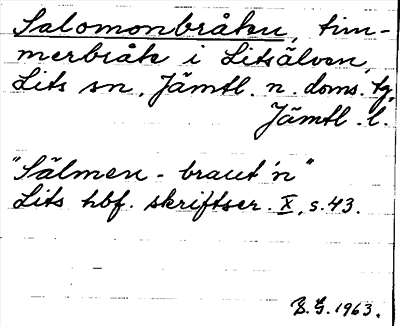 Salomonbråku, tim-
merbråk i Litsälven,
Lits sn, Jämtl. n. doms. tg,
Jämtl. l.
"Sälmen - braut'n"
Lits hbf. skriftser. X, s. 43.
B. G. 1963.